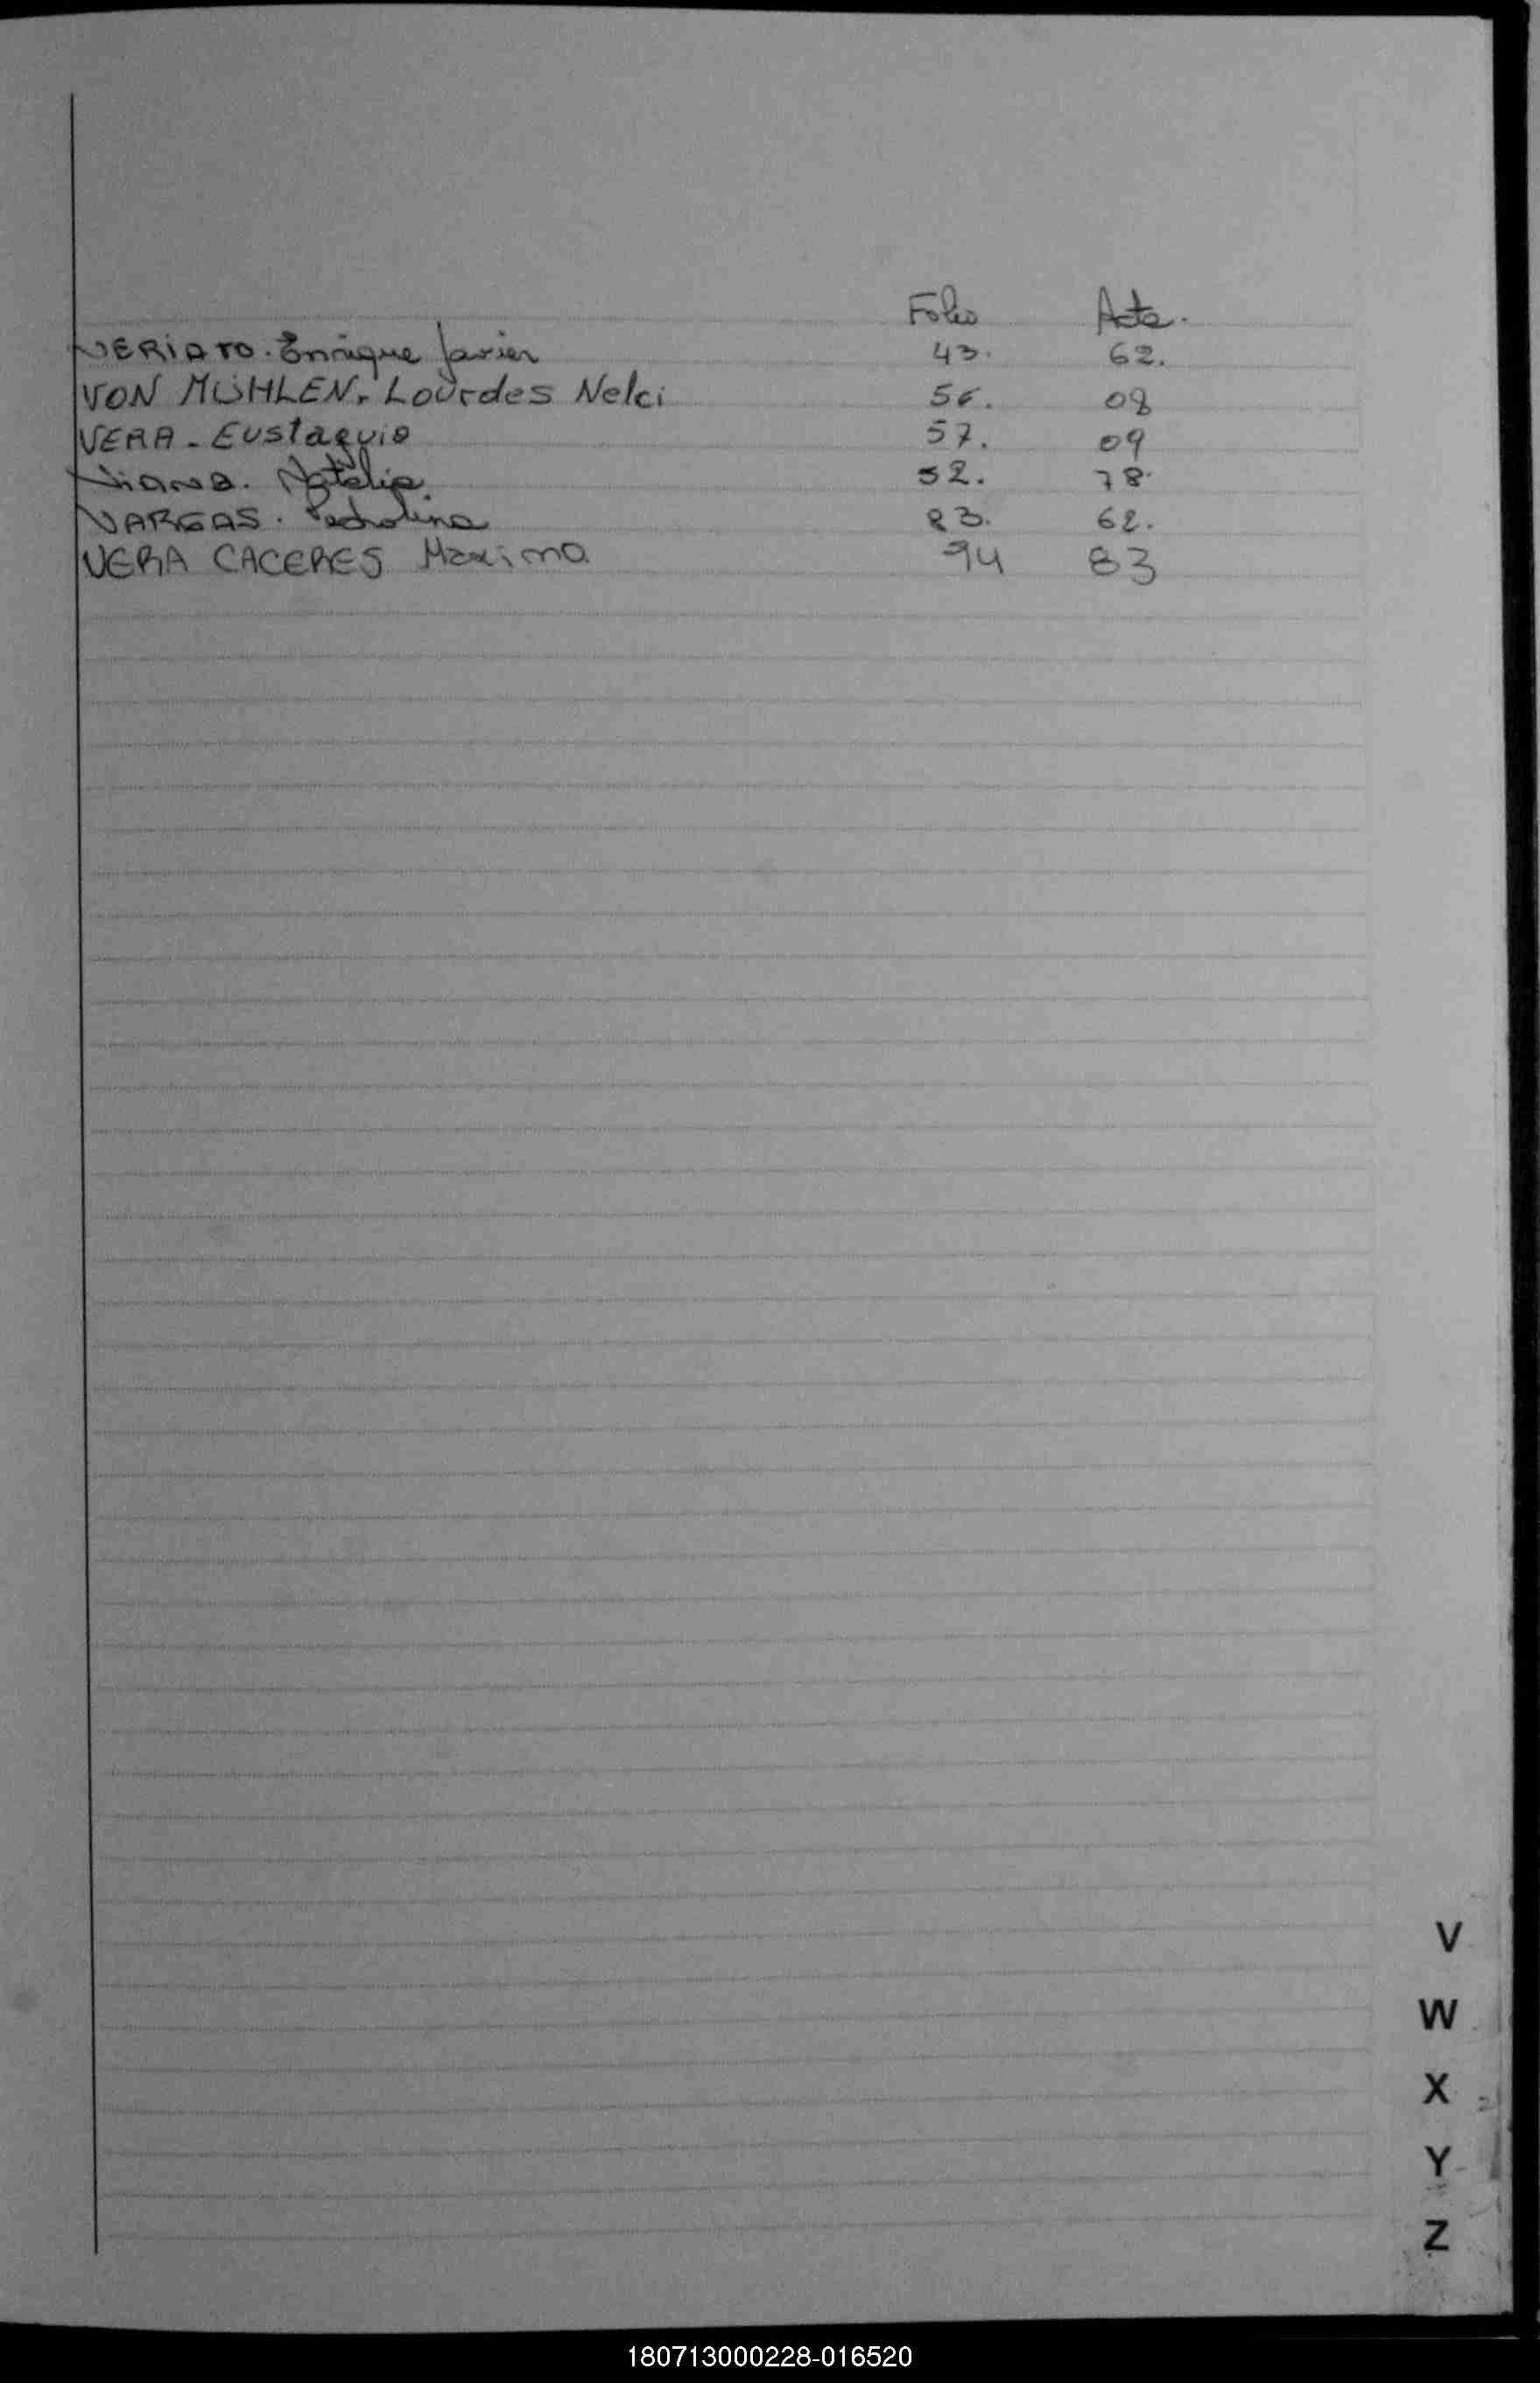 Folio Acta.
VERIATO. Enrique Javier 43. 62.
VON MÜHLEN, Lourdes Nelci 56. 08
VERA - Eustaquio 57. 09
Viana. Natalia. 52. 78.
VARGAS. Pedrolina 83. 62.
VERA CACERES Maxima 94 83
V
W
X
Y
Z
180713000228-016520